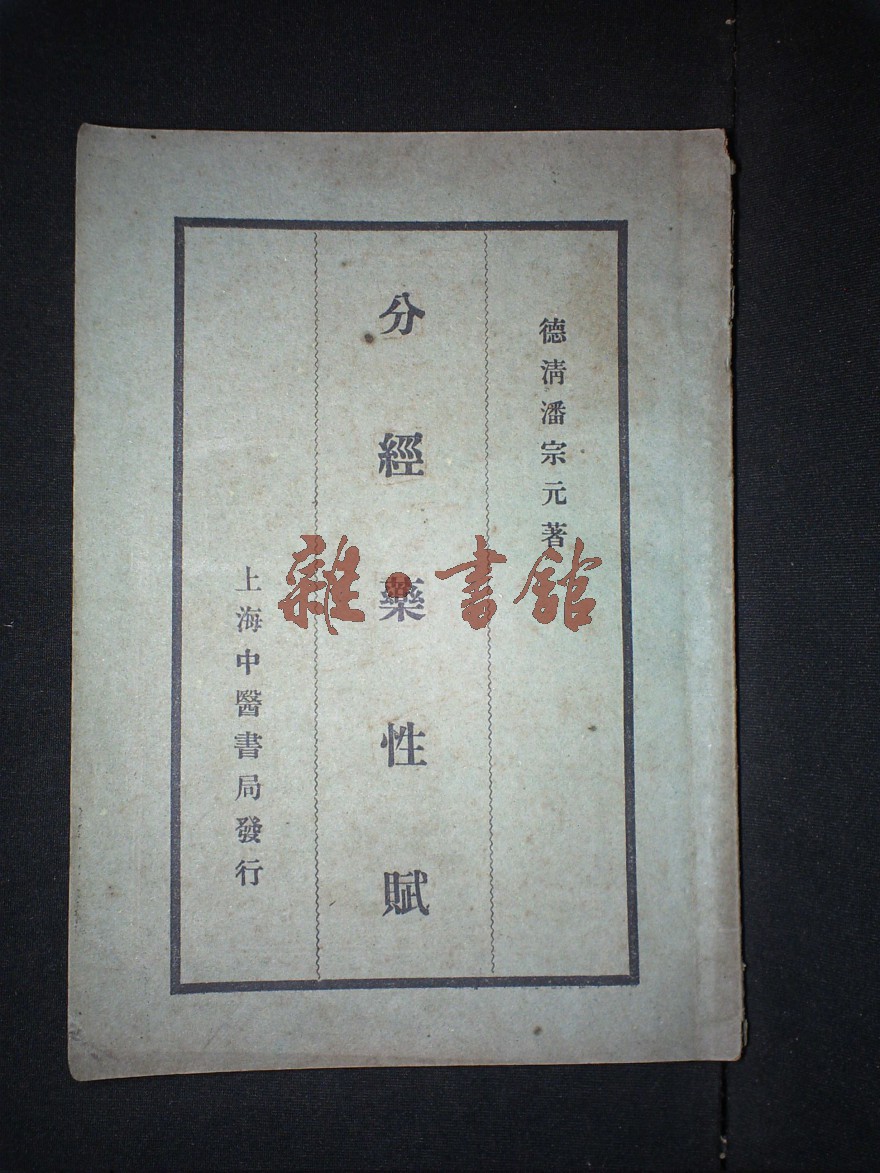 德清潘宗元著
分經藥性賦
上海中醫書局發行
雜·書館